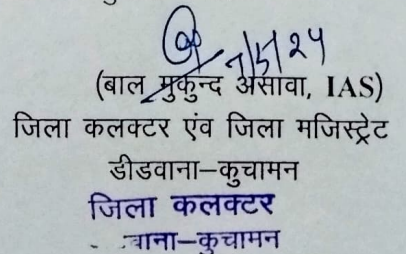 7/5/24
(बाल मुकुन्द असावा, IAS)
जिला कलक्टर एंव जिला मजिस्ट्रेट
डीडवाना–कुचामन
जिला कलक्टर
वाना–कुचामन